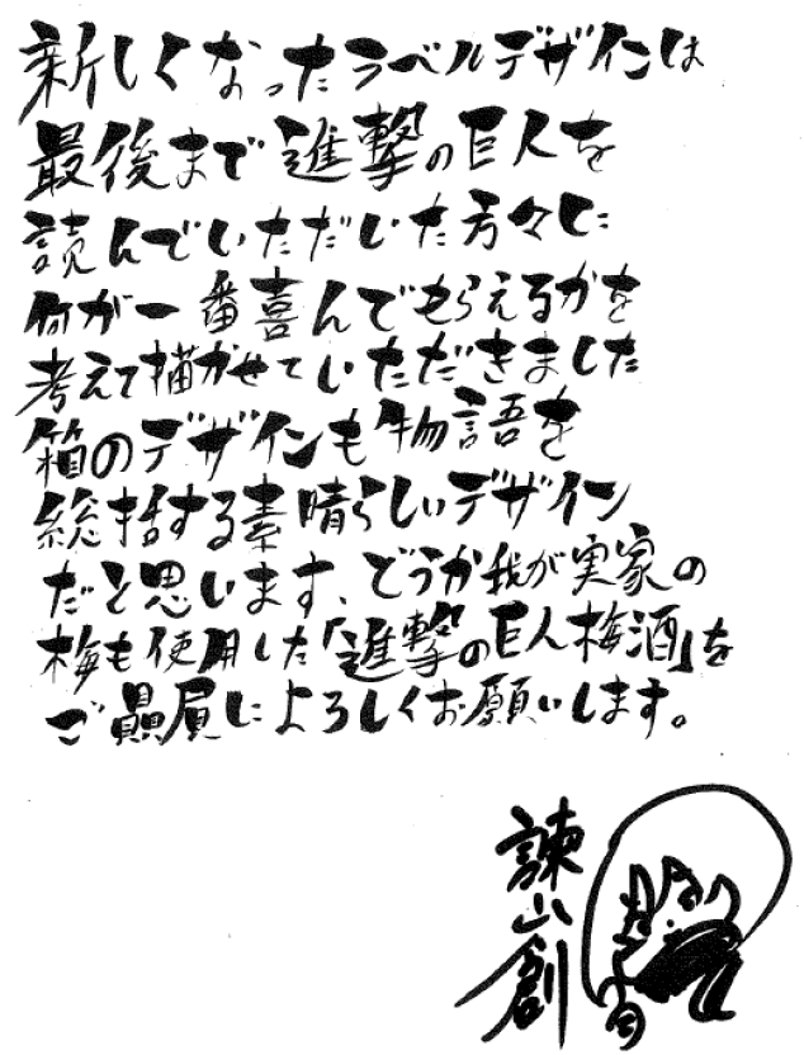 新しくなったラベルデザインは
最後まで進撃の巨人を
読んでいただいた方々に
何が一番喜んでもらえるかを
考えて描かせていただきました
箱のデザインも物語を
総括する素晴らしいデザイン
だと思います、どうか我が実家の
梅も使用した「進撃の巨人梅酒」を
ご贔屓によろしくお願いします。
諫山創